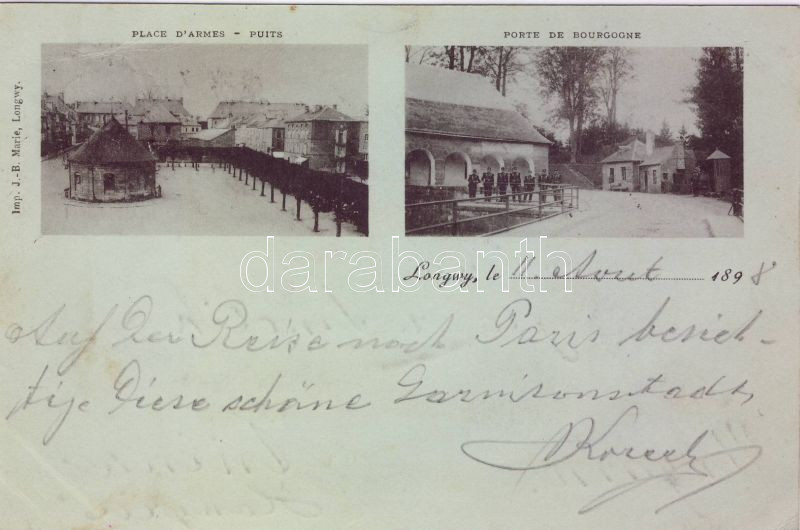 PLACE D'ARMES – PUITS
PORTE DE BOURGOGNE
Imp. J.-B. Marie, Longwy.
darabanth
Longwy, le 11. Aout 1898
Auf der Reise nach Paris besich-
tige diese schöne Garnisonsstadt,